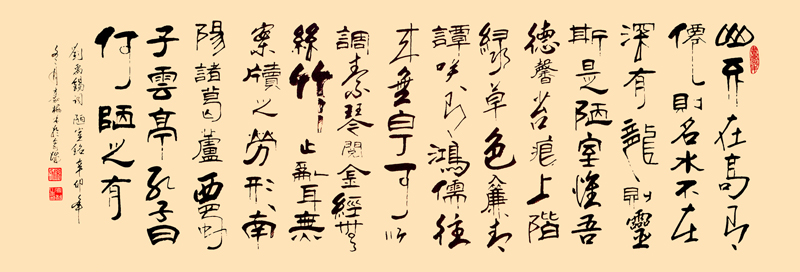 山不在高有
僊則名水不在
深有龍則靈
斯是陋室惟吾
德馨苔痕上階
綠草色入簾青
譚咲有鴻儒往
来無白丁可以
調素琴閱金經無
絲竹之亂耳無
案牘之勞形南
陽諸葛蘆西蜀
子雲亭孔子曰
何陋之有
劉禹錫詞陋室銘辛卯年
冬月